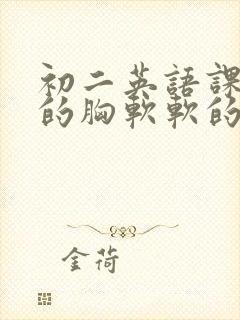 初二英語課
的胸軟軟的
金荷